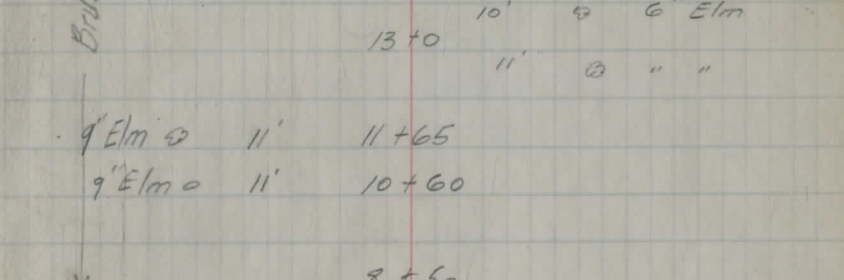 10' 6" Elm
13+0
11' " "
9" Elm 11' 11+65
9" Elm 11' 10+60